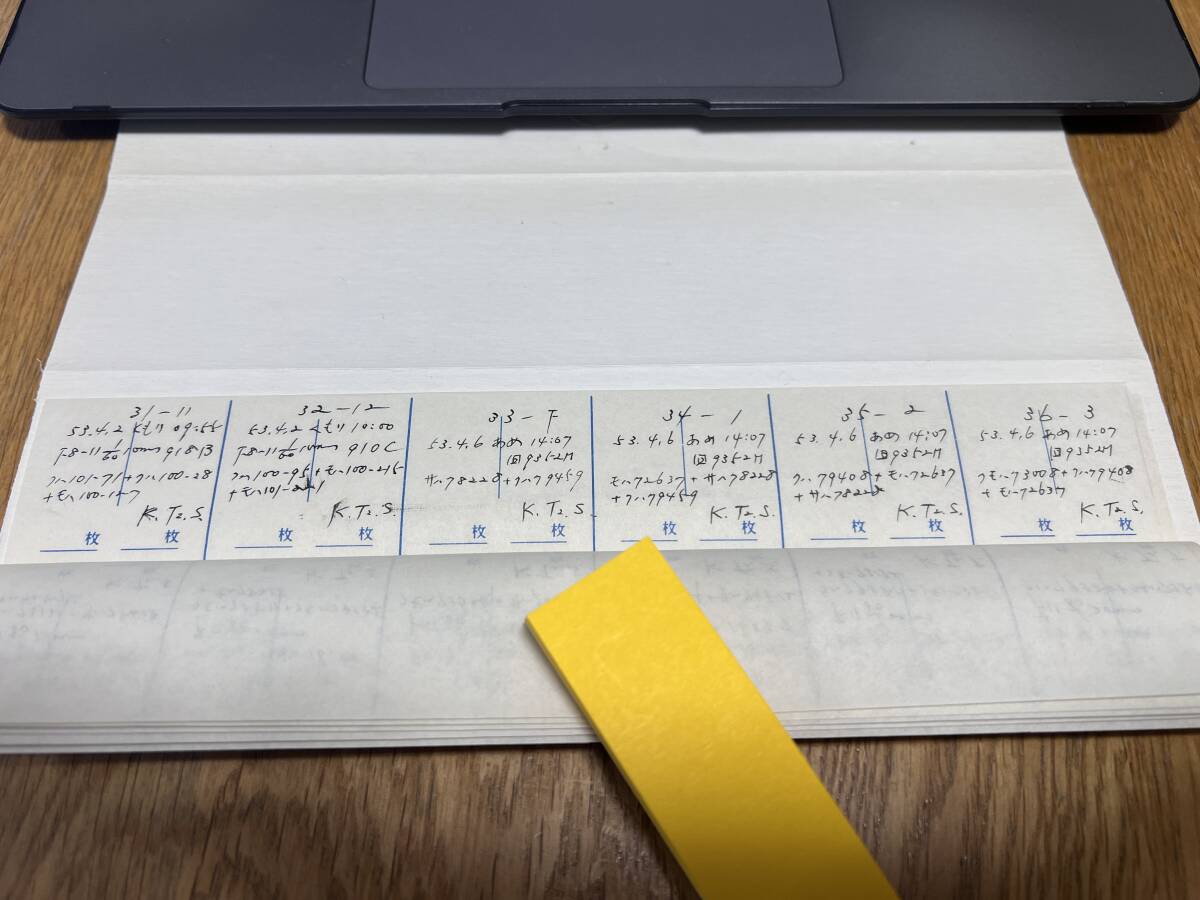 31-11
53.4.2 くもり 09:55
F8-11 1/60 100mm 918B
クハ101-71+クハ100-28
+モハ100-127
K.T2.S.
枚 枚
32-12
53.4.2 くもり 10:00
F8-11 1/60 100mm 910C
クハ100-95+モハ100-215
+モハ101-221
K.T2.S.
枚 枚
33-下
53.4.6 あめ 14:07
回9352M
サハ78228+クハ79459
K.T2.S.
枚 枚
34-1
53.4.6 あめ 14:07
回9352M
モハ72637+サハ78228
+クハ79459
K.T2.S.
枚 枚
35-2
53.4.6 あめ 14:07
回9352M
クハ79408+モハ72637
+サハ78228
K.T2.S.
枚 枚
36-3
53.4.6 あめ 14:07
回9352M
クモハ73008+クハ79408
+モハ72637
K.T2.S.
枚 枚